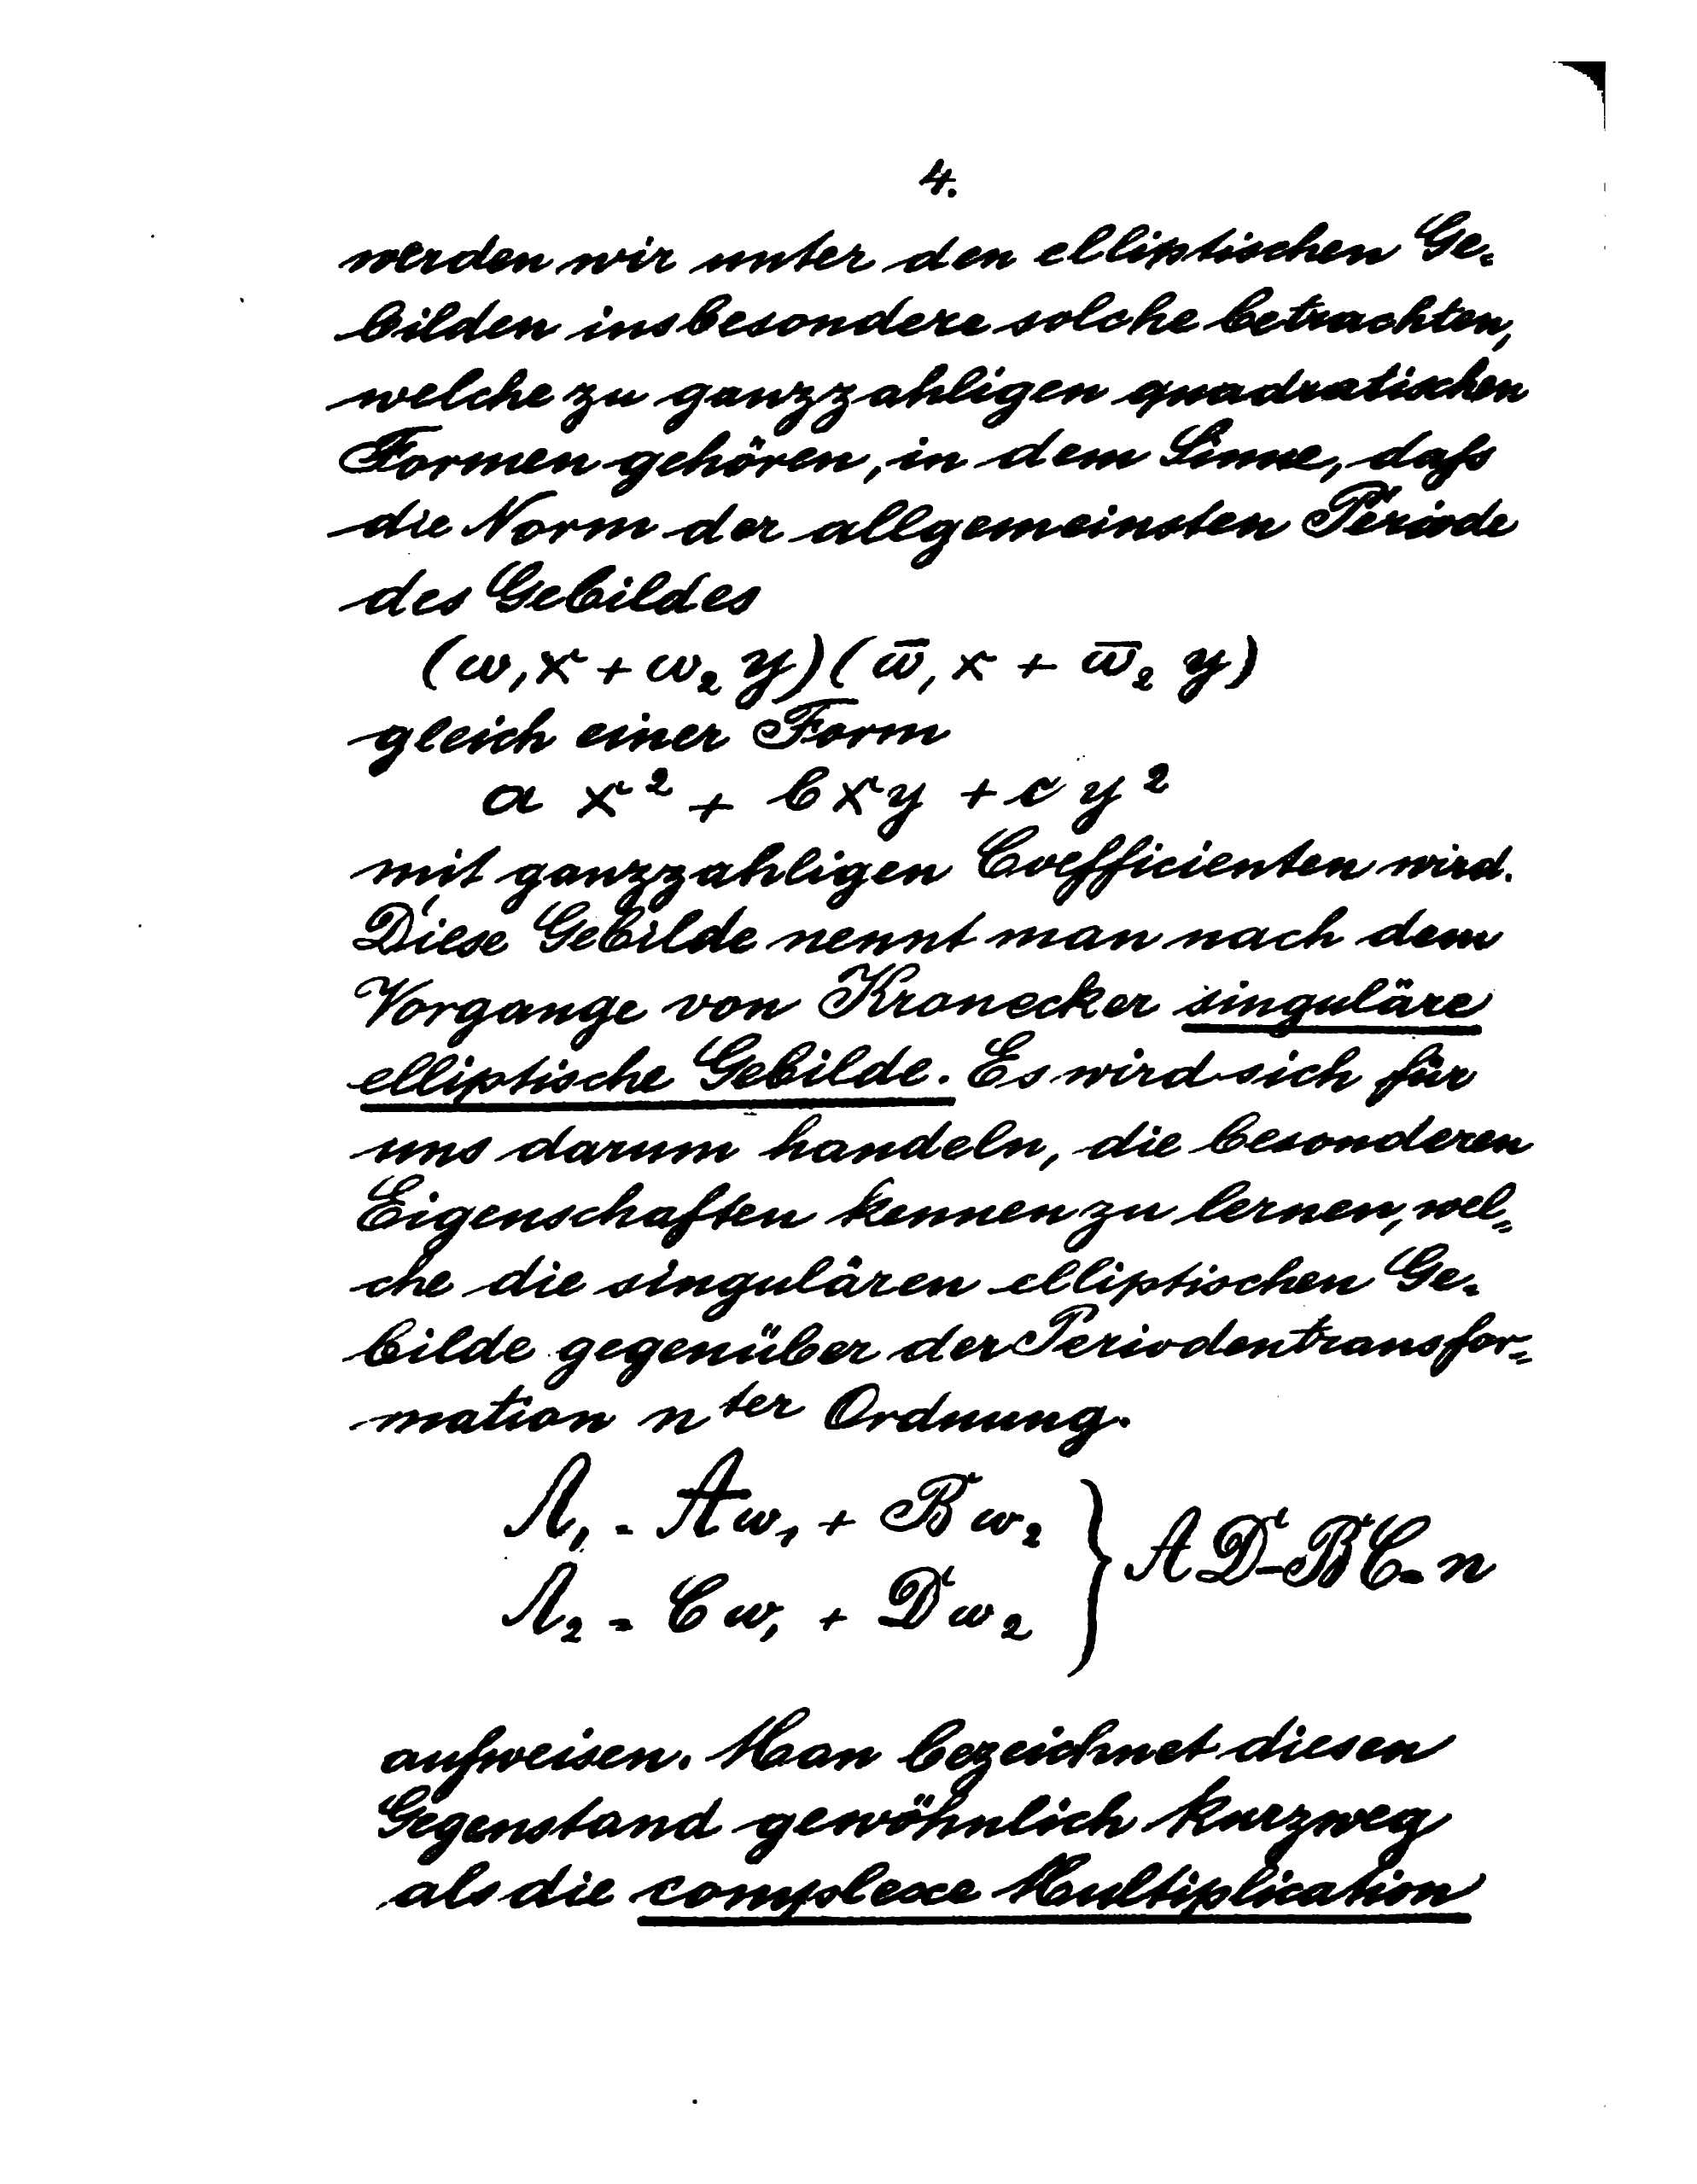 4.
werden wir unter den elliptischen Ge-
bilden insbesondere solche betrachten,
welche zu ganzzahligen quadratischen
Formen gehören, in dem Sinne, dafs
die Norm der allgemeinsten Periode
des Gebildes
(ω₁x + ω₂y)(ω̄₁x + ω̄₂y)
gleich einer Form
a x² + bxy + cy²
mit ganzzahligen Coefficienten wird.
Diese Gebilde nennt man nach dem
Vorgange von Kronecker singuläre
elliptische Gebilde. Es wird sich für
uns darum handeln, die besonderen
Eigenschaften kennen zu lernen, wel-
che die singulären elliptischen Ge-
bilde gegenüber der Periodentransfor-
mation nter Ordnung.
Λ₁ = Aω₁ + Bω₂
Λ₂ = Cω₁ + Dω₂ } AD-BC = n
aufweisen. Man bezeichnet diesen
Gegenstand gewöhnlich kurzweg
als die complexe Multiplication